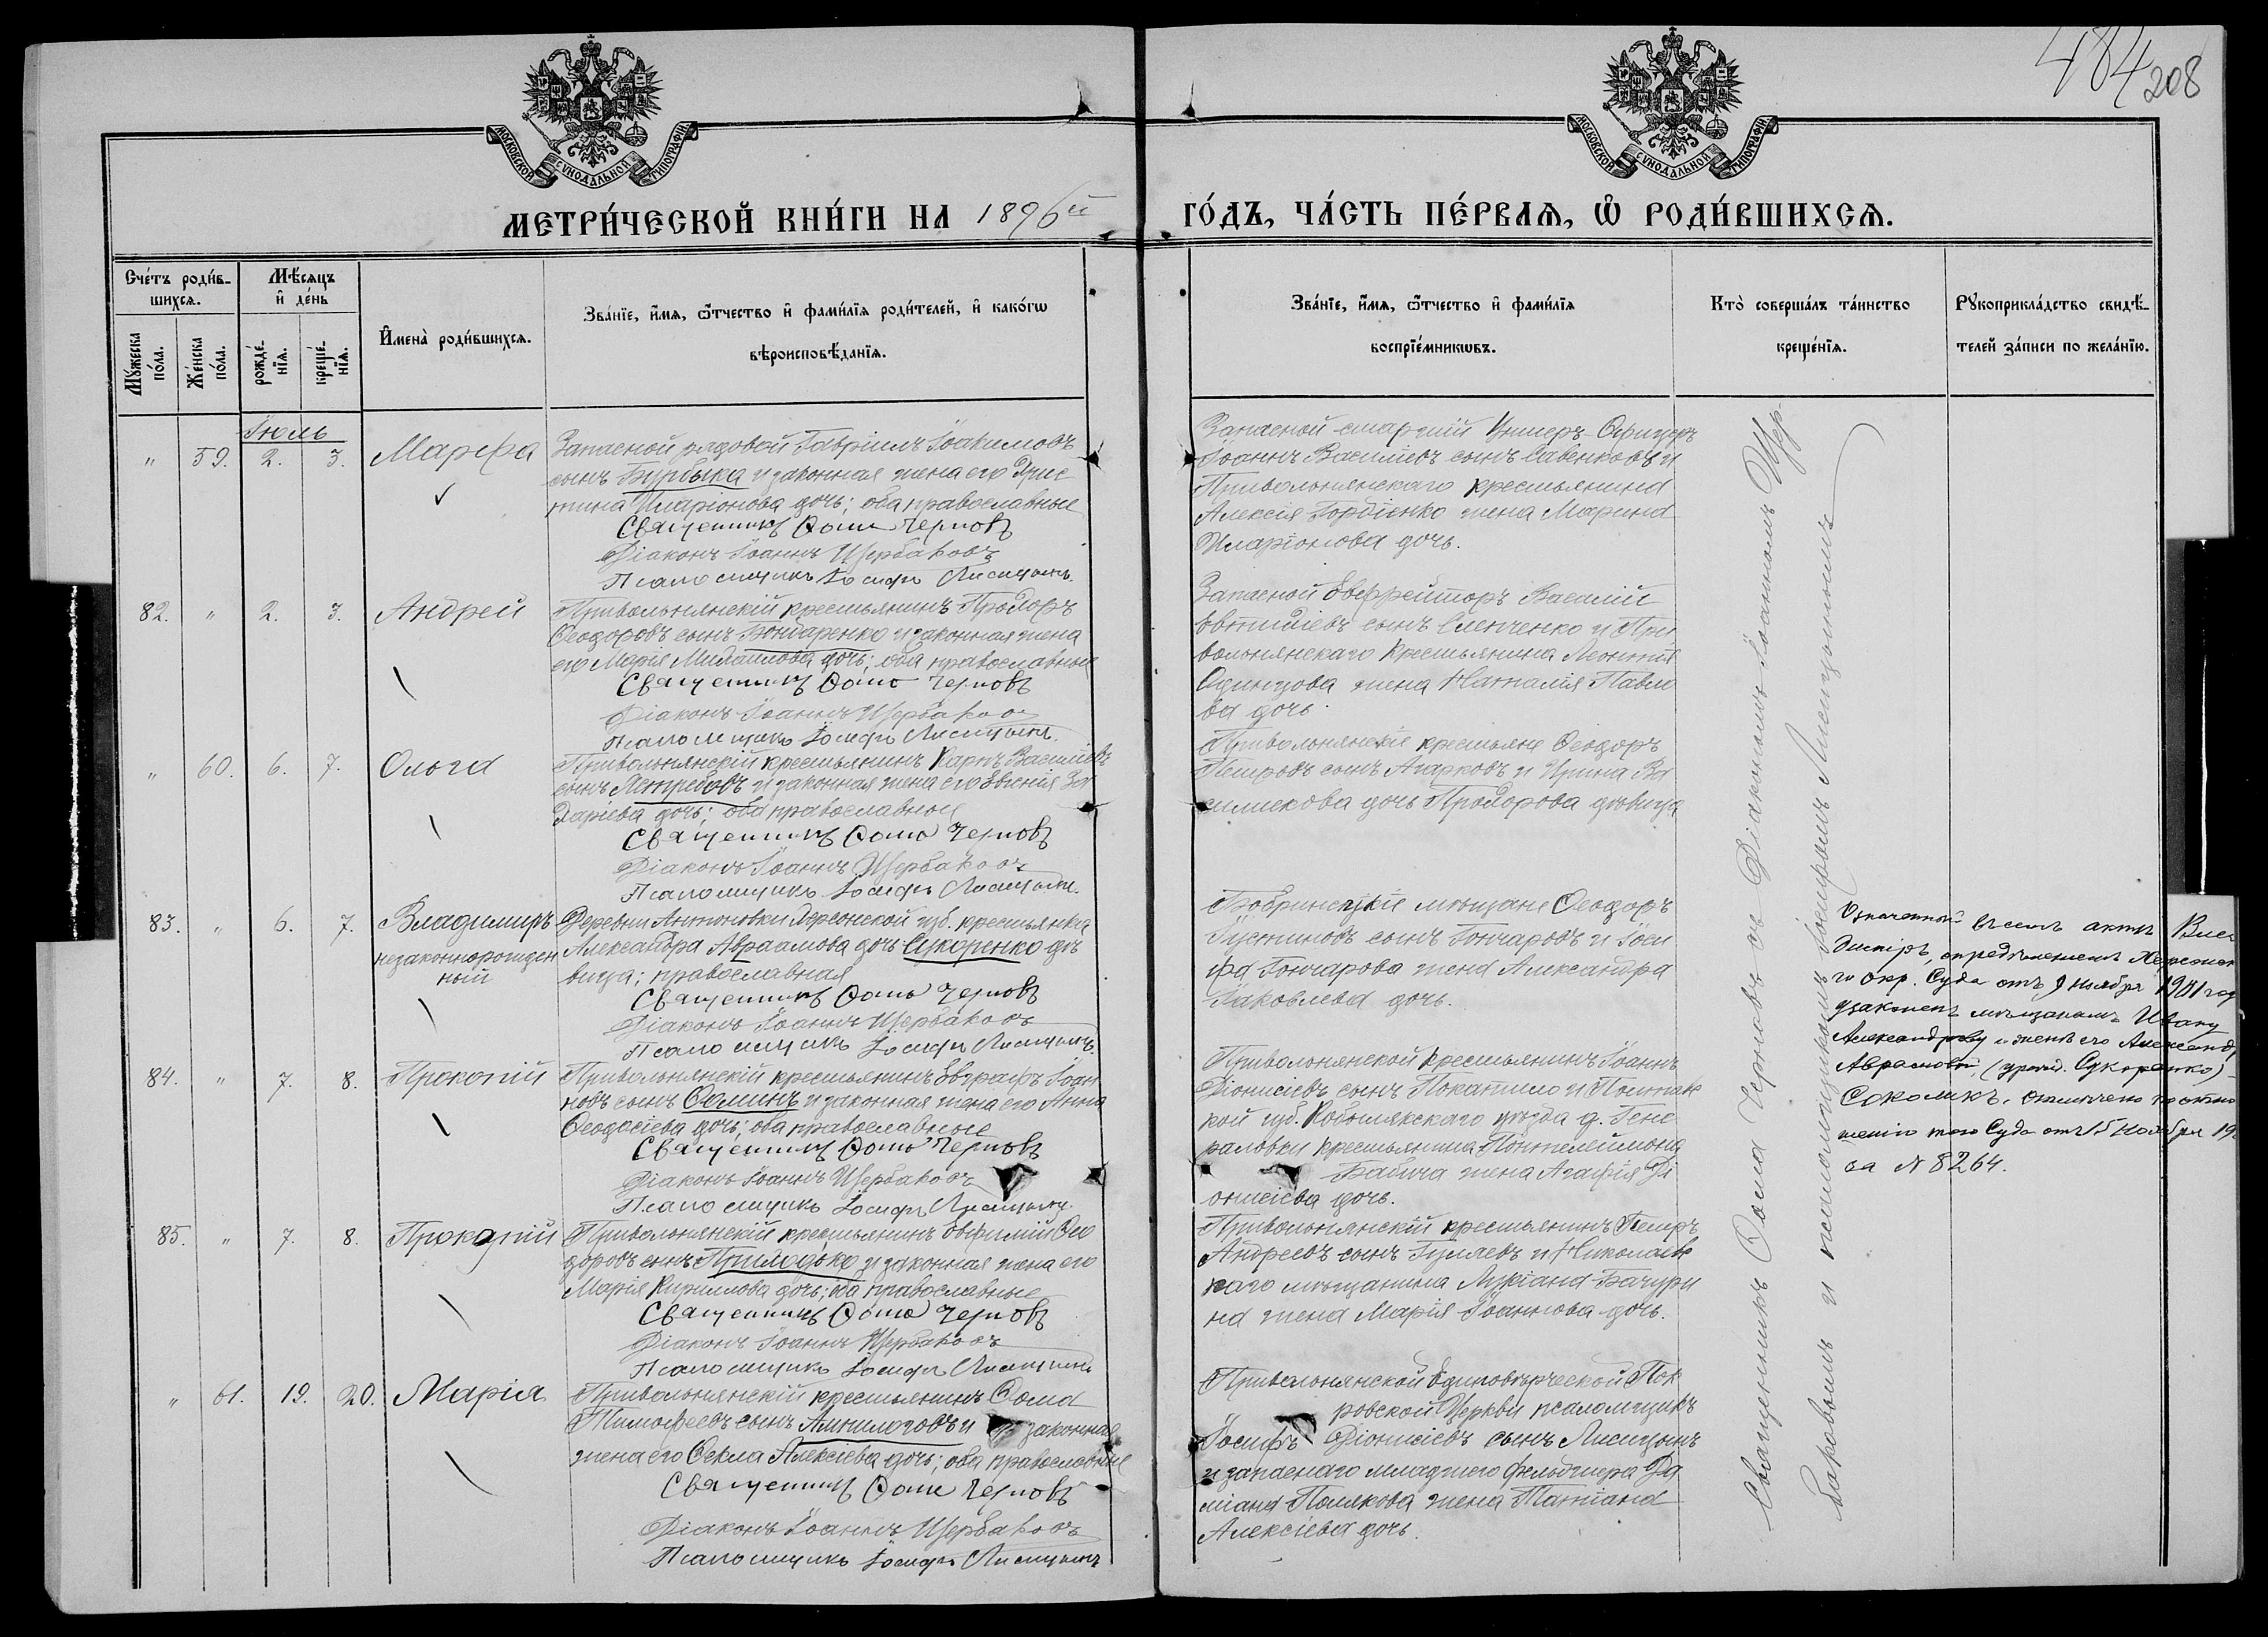 484 208
МОСКОВСКОЙ СѴНОДАЛЬНОЙ ТИПОГРАФІИ
МОСКОВСКОЙ СѴНОДАЛЬНОЙ ТИПОГРАФІИ
МЕТРИ́ЧЕСКОЙ КНИ́ГИ НА 1896й ГО́ДЪ, ЧА́СТЬ ПЕ́РВАѦ, Ѡ РОДИ́ВШИХСѦ.
Сче́тъ роди́в-
шихсѧ.
Мꙋ́жеска по́ла.
Же́нска по́ла.
Мѣ́сѧцъ
и҆ де́нь
рожде́-
нїѧ.
креще́-
нїѧ.
И҆мена̀ роди́вшихсѧ.
Зва́нїе, и҆́мѧ, ѻ҆́тчество и҆ фами́лїѧ роди́телей, и҆ како́гѡ
вѣроисповѣ́данїѧ.
Зва́нїе, и҆́мѧ, ѻ҆́тчество и҆ фами́лїѧ
воспрїе́мникѡвъ.
Кто̀ соверша́лъ та́инство
креще́нїѧ.
Рꙋкоприкла́дство свидѣ́-
телей за́писи по жела́нїю.
Іюль
" 59. 2. 3. Марѳа
Запасной рядовой Гавріилъ Іоакимовъ
сынъ Бурбыка и законная жена его Хрис
тина Иларіонова дочь; оба православные
Священникъ Ѳома Черновъ
Діаконъ Іоаннъ Щербаковъ
Псаломщикъ Іосифъ Лисицынъ.
Запасной старшій Унтеръ-Офицеръ
Іоаннъ Василіевъ сынъ Савенковъ и
Привольнянскаго крестьянина
Алексія Гордіенко жена Марина
Иларіонова дочь.
82. " 2. 3. Андрей
Привольнянскій крестьянинъ Прохоръ
Ѳеодоровъ сынъ Бондаренко и законная жена
его Марія Михаилова дочь; оба православные
Священникъ Ѳома Черновъ
Діаконъ Іоаннъ Щербаковъ
Псаломщикъ Іосифъ Лисицынъ.
Запасной Ефрейторъ Василій
сынъ Слепченко и При
вольнянскаго крестьянина Леонтія
Одинцова жена Наталія Павло
ва дочь.
" 60. 6. 7. Ольга
Привольнянскій крестьянинъ Карпъ Василіевъ
сынъ Ястребовъ и законная жена его Евгенія За
харіева дочь; оба православные
Священникъ Ѳома Черновъ
Діаконъ Іоаннъ Щербаковъ
Псаломщикъ Іосифъ Лисицынъ.
Привольнянскіе крестьяне Ѳеодоръ
Петровъ сынъ Агарковъ и Ирина Ва
силискова дочь Прохорова дѣвица
83. " 6. 7. Владиміръ
незаконнорожден
ный
Деревни Антоновки Херсонской губ. крестьянка
Александра Авраамова дочь Сукоренко дѣ
вица; православная
Священникъ Ѳома Черновъ
Діаконъ Іоаннъ Щербаковъ
Псаломщикъ Іосифъ Лисицынъ.
Бобринецкіе мѣщане Ѳеодоръ
Іустиновъ сынъ Гончаровъ и Іоси
фа Гончарова жена Александра
Іаковлева дочь.
Означенный въ семъ актѣ Вла
диміръ, опредѣленіемъ Херсонск
го Окр. Суда отъ 9 ноября 1901 год
узаконенъ мѣщанамъ Ивану
Александрову и женѣ его Александр
Авраамовой, (урожд. Сукоренко)
Соколикъ. Отмѣчено по отно
шенію того Суда отъ 15 Ноября 19
за N 8264.
84. " 7. 8. Прокопій
Привольнянскій крестьянинъ Евграфъ Іоан
новъ сынъ Ѳоминъ и законная жена его Анна
Ѳеодосіева дочь; оба православные
Священникъ Ѳома Черновъ
Діаконъ Іоаннъ Щербаковъ
Псаломщикъ Іосифъ Лисицынъ.
Привольнянской крестьянинъ Іоаннъ
Діонисіевъ сынъ Покатило и Полтавс
кой губ. Кобылякскаго уѣзда д. Гене
раловки крестьянина Понтелеймона
Бабича жена Агафія Ді
онисіева дочь.
85. " 7. 8. Прокопій
Привольнянскій крестьянинъ Евфимій Ѳео
доровъ сынъ Приходько и законная жена его
Марія Кирилова дочь; оба православные
Священникъ Ѳома Черновъ
Діаконъ Іоаннъ Щербаковъ
Псаломщикъ Іосифъ Лисицынъ
Привольнянскій крестьянинъ Петръ
Андреевъ сынъ Гуляевъ и Николаевс
каго мѣщанина Лукіана Бачури
на жена Марія Іоаннова дочь.
" 61. 19. 20. Марія
Привольнянскій крестьянинъ Ѳома
Тимоѳеевъ сынъ Ампилоговъ и законная
жена его Ѳекла Алексіева дочь; оба православные
Священникъ Ѳома Черновъ
Діаконъ Іоаннъ Щербаковъ
Псаломщикъ Іосифъ Лисицынъ
Привольнянской Единовѣрческой Пок
ровской Церкви псаломщикъ
Іосифъ Діонисіевъ сынъ Лисицынъ
и запаснаго младшего фельдшера Да
міана Полякова жена Татіана
Алексіева дочь.
Священникъ Ѳома Черновъ съ Діакономъ Іоанномъ Щер-
баковымъ и псаломщикомъ Іосифомъ Лисицынымъ